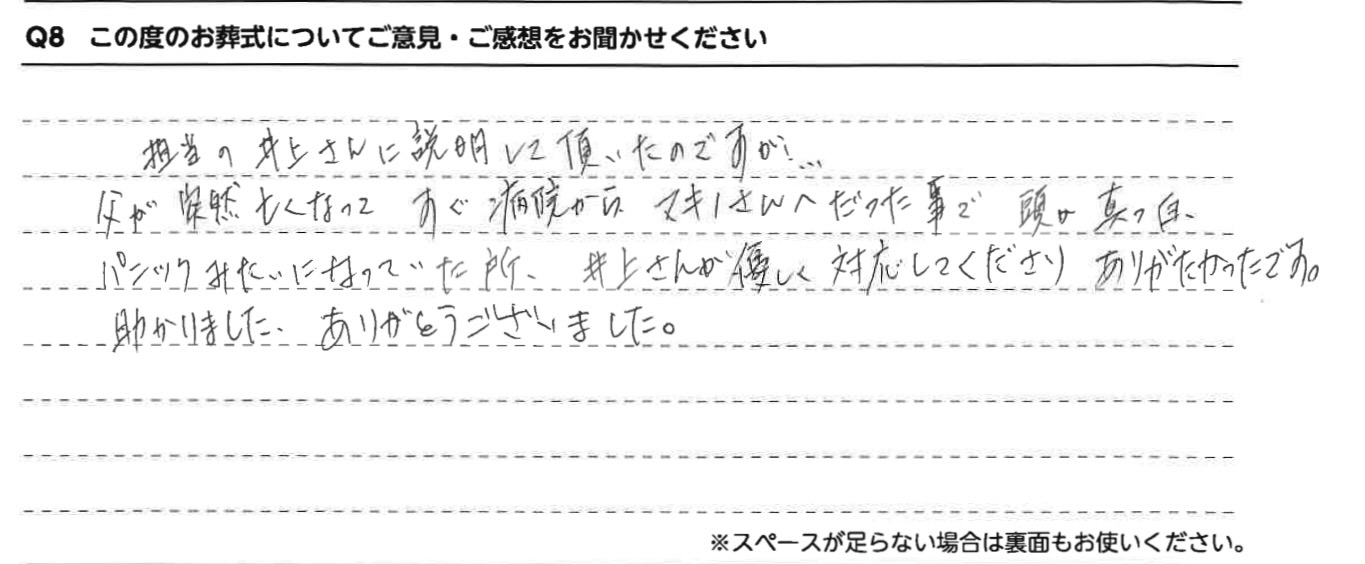 Q8 この度のお葬式についてご意見・ご感想をお聞かせください
担当の井上さんに説明して頂いたのですが…
父が突然亡くなって すぐ病院からマキノさんへだった事で 頭が真っ白、
パニックみたいになっていた所、井上さんが優しく対応してくださり ありがたかったです。
助かりました、ありがとうございました。
※スペースが足らない場合は裏面もお使いください。